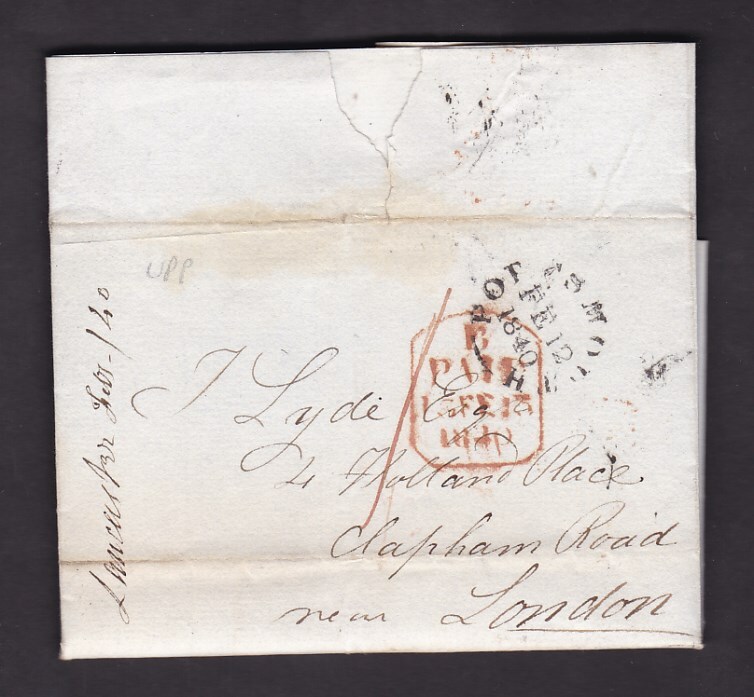 UPP
PORTSMOUTH
FE 12
1840
B
PAID
FE 13
1840
1
J Lyde Esqr
4 Holland Place
Clapham Road
near London
Feb /40